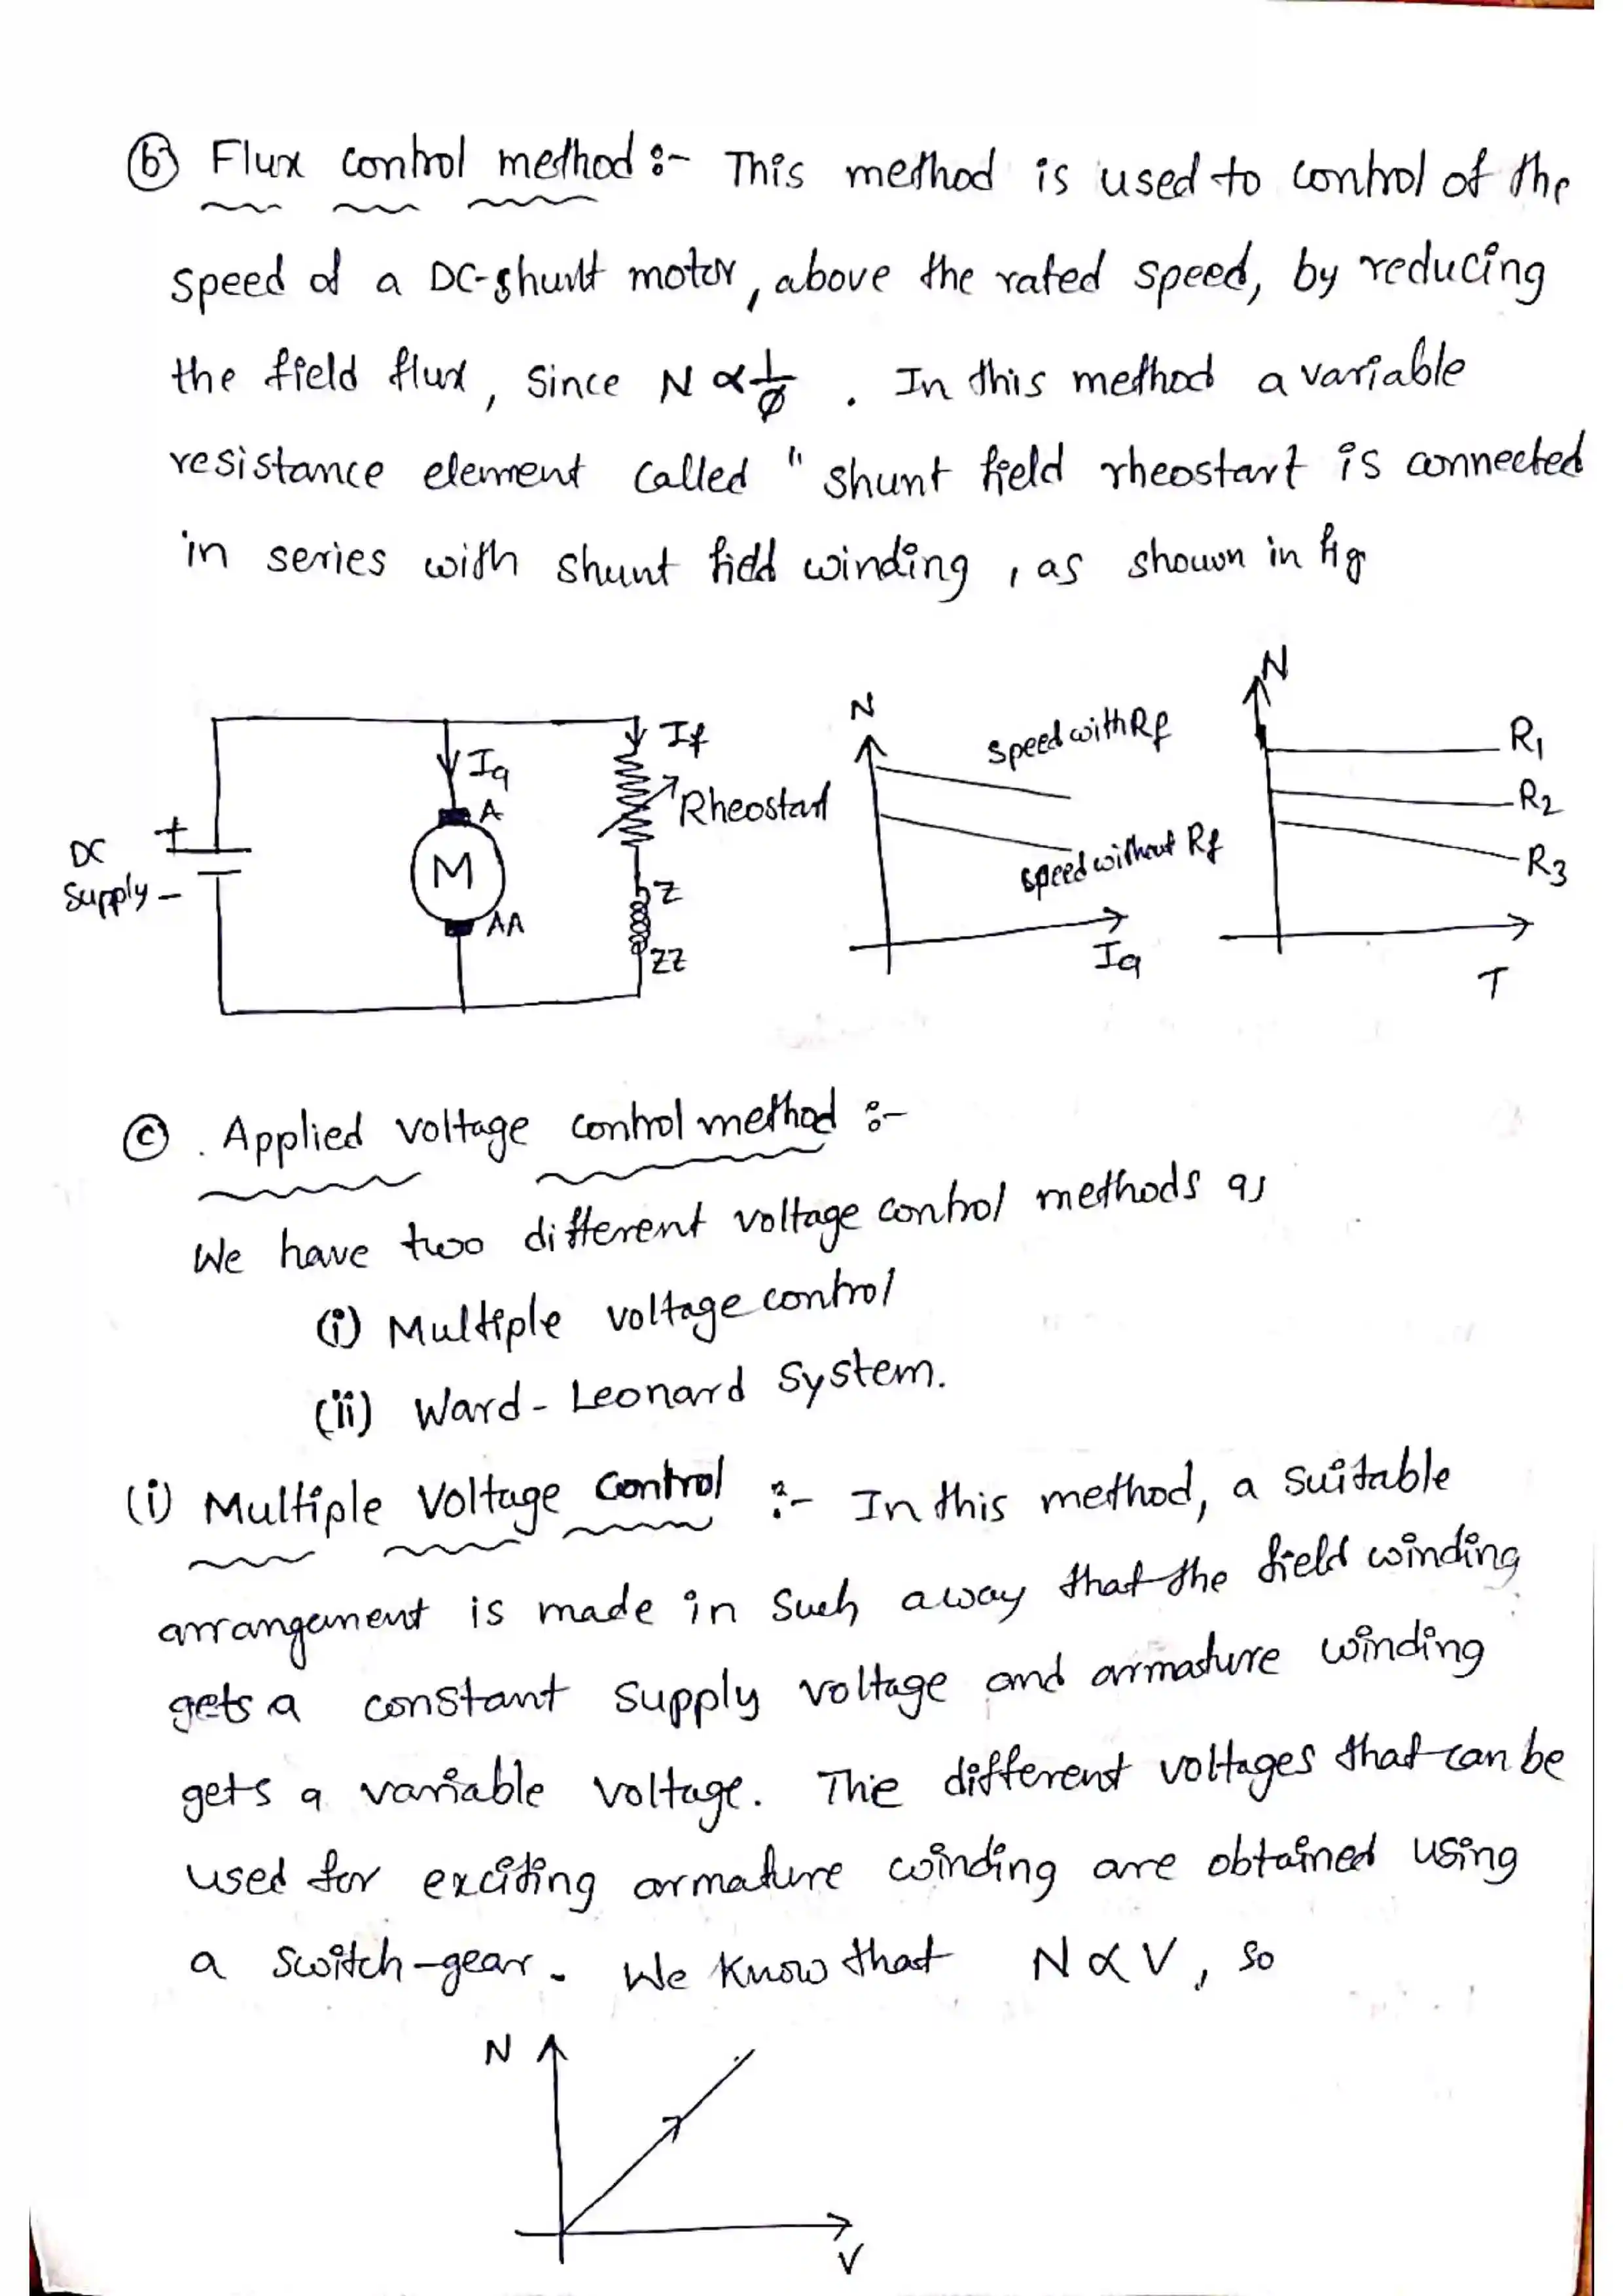 (b) Flux control method :- This method is used to control of the
speed of a DC-shunt motor, above the rated speed, by reducing
the field flux, since N ∝ 1/Ø . In this method a variable
resistance element called " shunt field rheostart is connected
in series with shunt field winding, as shown in fig
DC
Supply
+
-
Ia
A
M
AA
If
Rheostart
Z
ZZ
N
speed with Rf
speed without Rf
Ia
N
R1
R2
R3
T
(c) . Applied voltage control method :-
We have two different voltage control methods as
(i) Multiple voltage control
(ii) Ward - Leonard System.
(i) Multiple Voltage Control :- In this method, a suitable
arrangement is made in such a way that the field winding
gets a constant supply voltage and armature winding
gets a variable voltage. The different voltages that can be
used for exciting armature winding are obtained using
a switch-gear. We know that N ∝ V, so
N
V